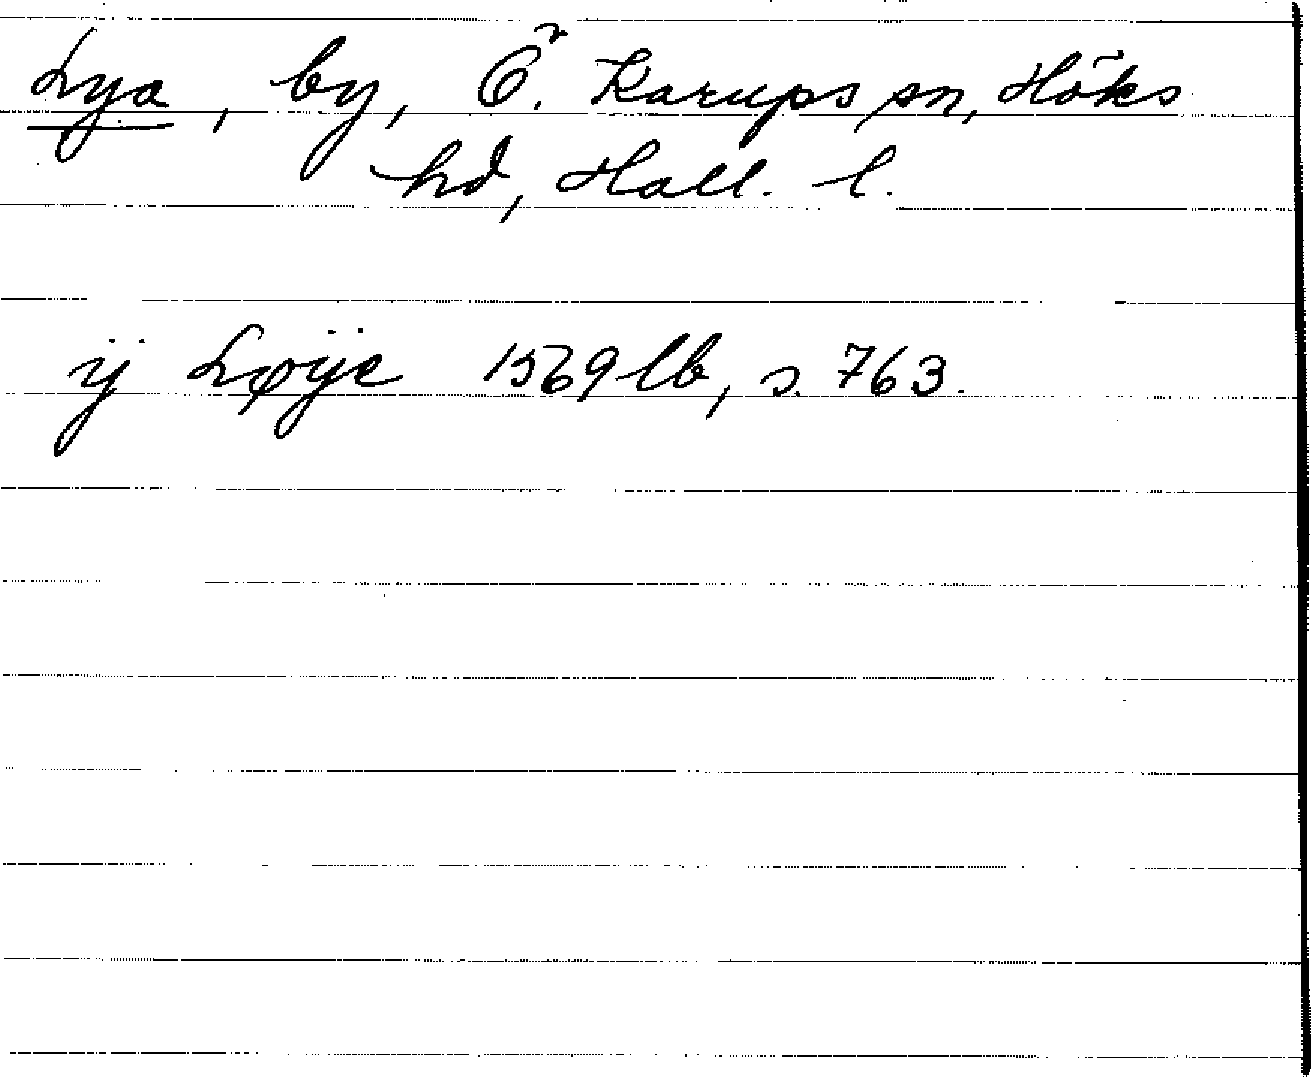 Lya, by, Ö. Karups sn, Höks
hd, Hall. l.
ÿ Løÿe 1569 lb, s. 763.